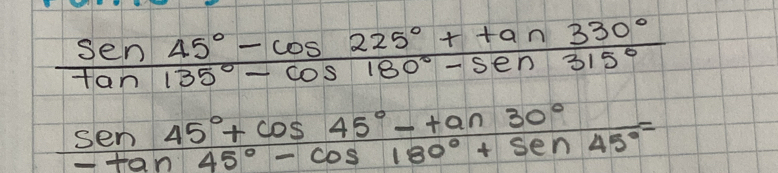 sen 45° - cos 225° + tan 330°
tan 135° - cos 180° - sen 315°
sen 45° + cos 45° - tan 30° =
- tan 45° - cos 180° + sen 45°